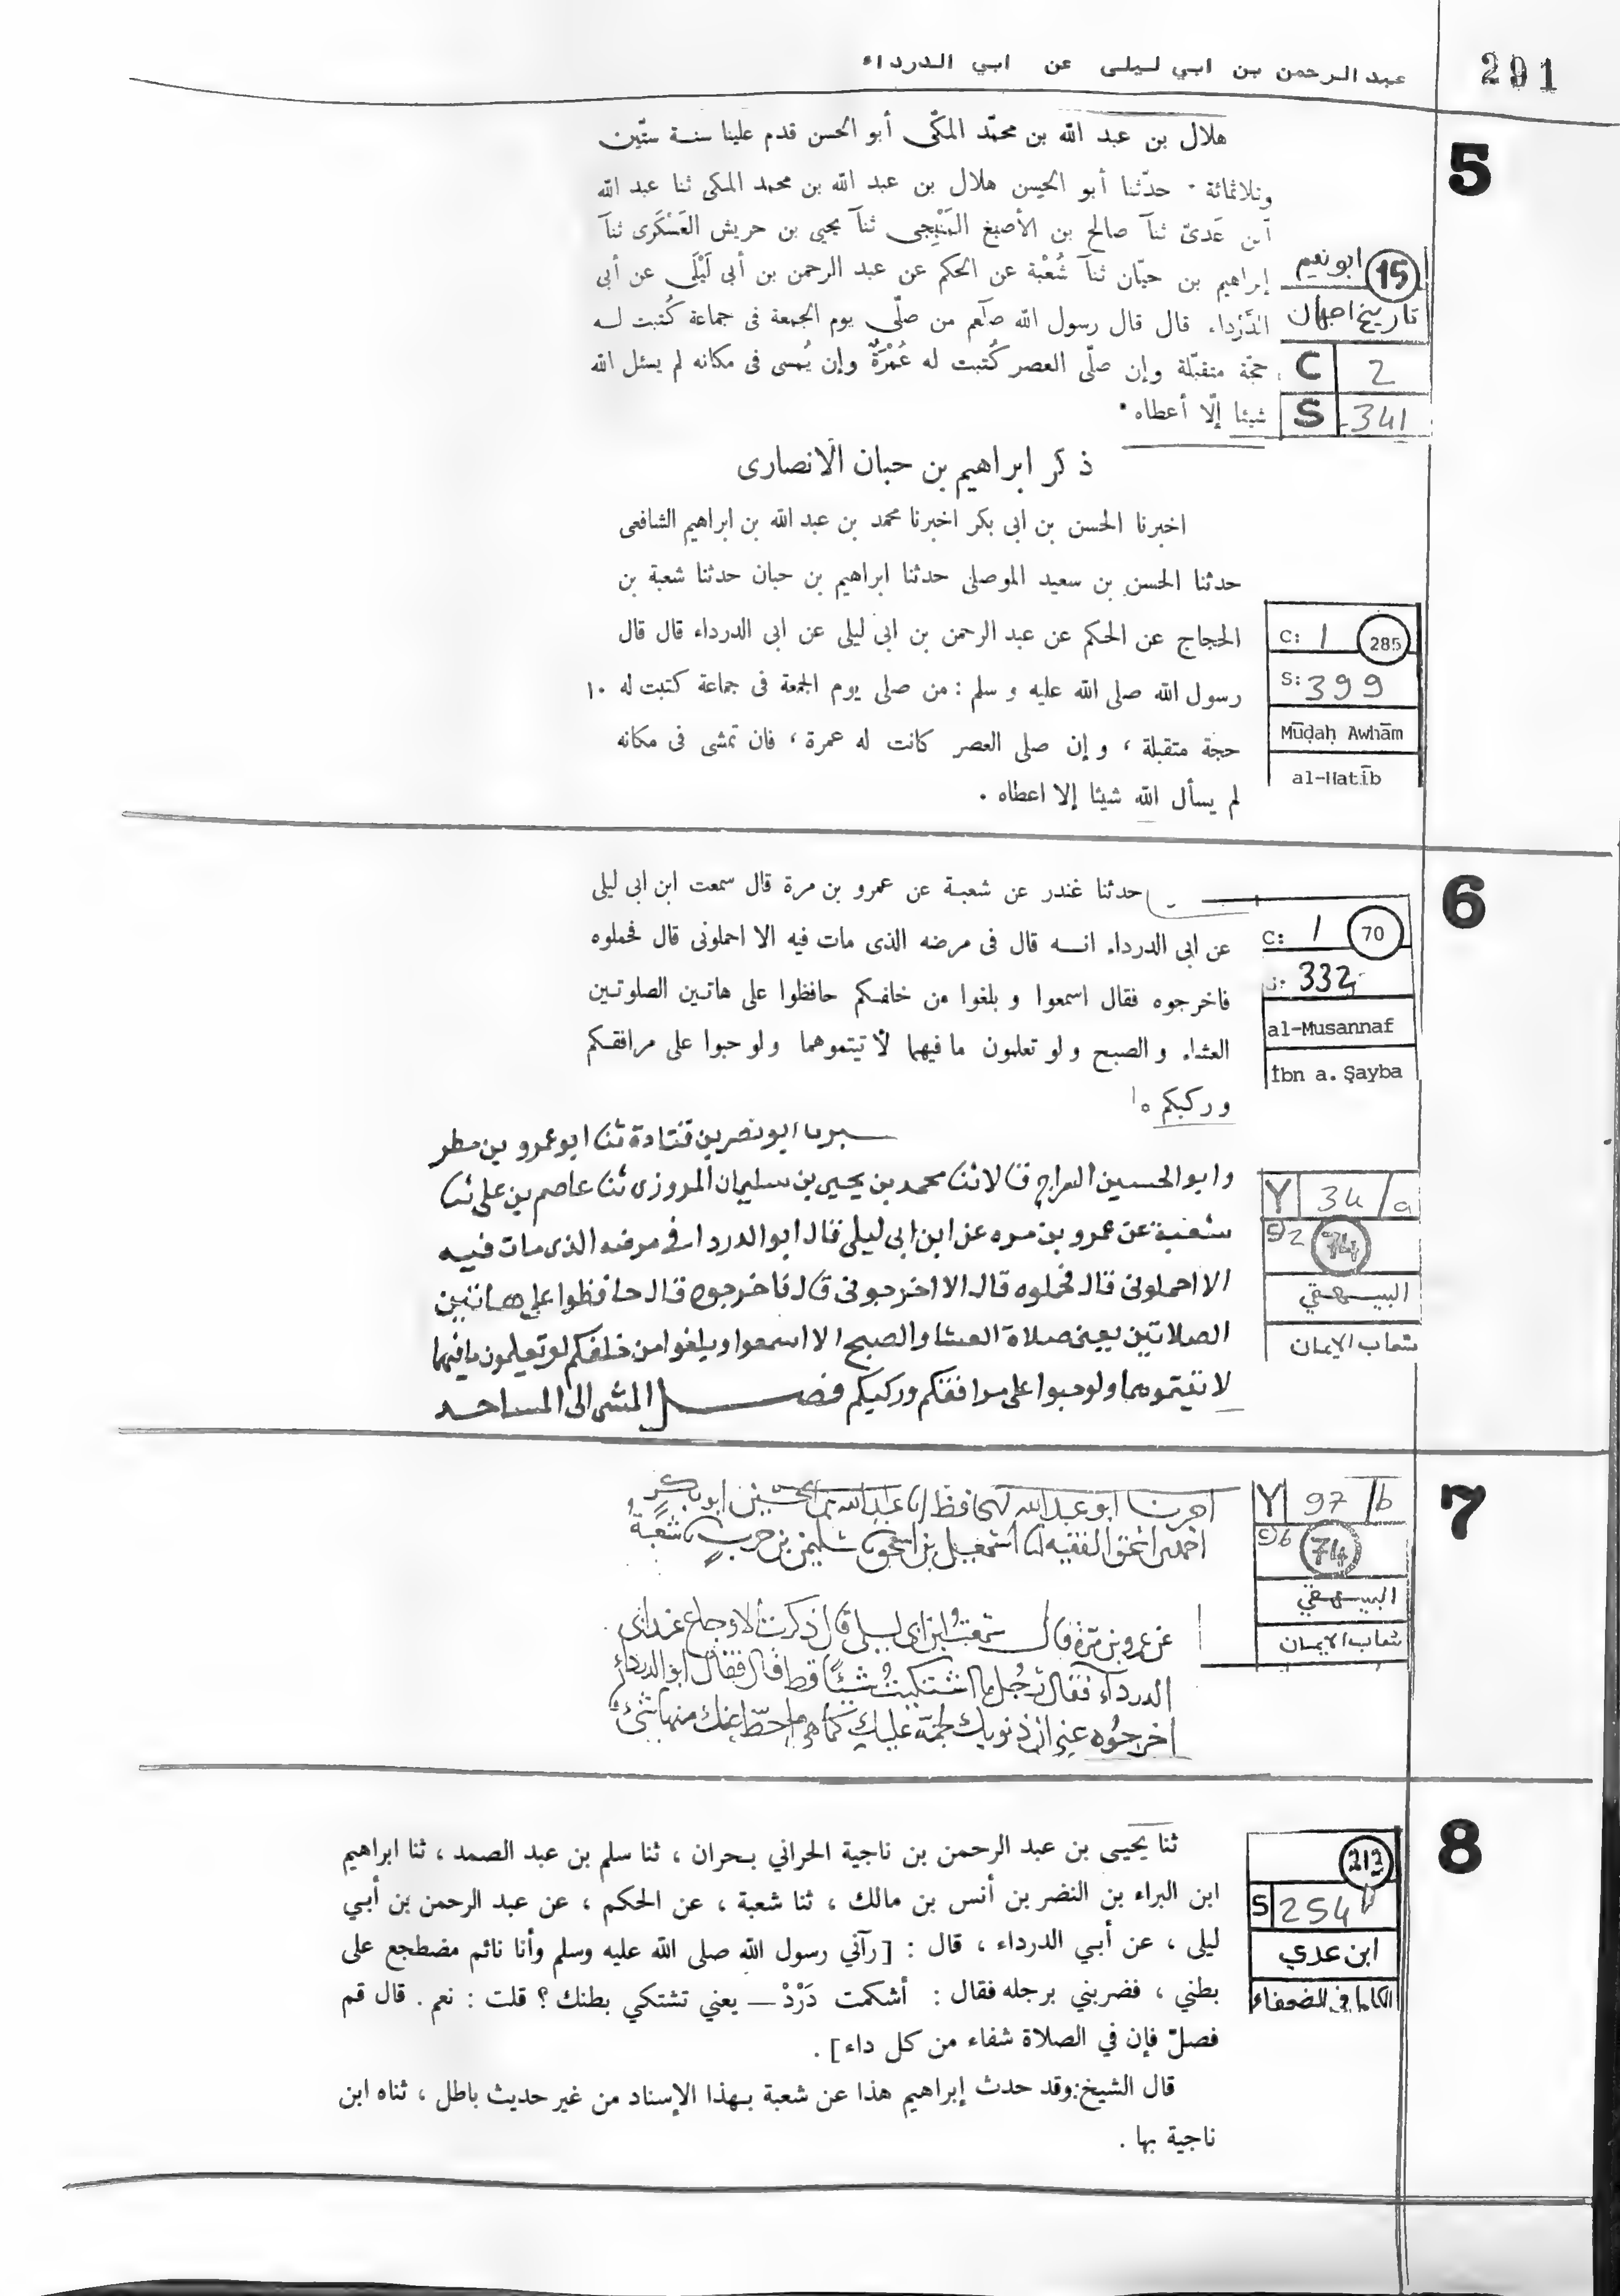 291
عبد الرحمن بن ابي ليلى عن ابي الدرداء
5
هلال بن عبد الله بن محمّد المكّى أبو الحسن قدم علينا سنة ستّين
وثلاثمائة · حدّثنا أبو الحسن هلال بن عبد الله بن محمد المكى ثنا عبد الله
ابن عَدىّ ثنآ صالح بن الأصبغ المَنْبِجى ثنآ يحيى بن حريش العَسْكَرى ثنآ
إبراهيم بن حيّان ثنآ شُعْبة عن الحكم عن عبد الرحمن بن أبى لَيْلَى عن أبى
الدَّرْداء قال قال رسول الله صلّعم من صلّى يوم الجمعة فى جماعة كُتبت لـه
حجّة متقبّلة وإن صلّى العصر كُتبت له عُمْرَةٌ وإن يُمسى فى مكانه لم يسئل الله
شيئا إلّا أعطاه ·
15
ابو نعيم
تاريخ اصبهان
C 2
S 341
ذكر ابراهيم بن حبان الانصارى
اخبرنا الحسن بن ابى بكر اخبرنا محمد بن عبد الله بن ابراهيم الشافعى
حدثنا الحسن بن سعيد الموصلى حدثنا ابراهيم بن حبان حدثنا شعبة بن
الحجاج عن الحكم عن عبد الرحمن بن ابى ليلى عن ابى الدرداء قال قال
رسول الله صلى الله عليه و سلم : من صلى يوم الجمعة فى جماعة كتبت له ١٠
حجة متقبلة ، و إن صلى العصر كانت له عمرة ، فان تمشى فى مكانه
لم يسأل الله شيئا إلا اعطاه .
C: 1 285
S: 399
Mūḍaḥ Awhām
al-Hatīb
6
حدثنا غندر عن شعبـة عن عمرو بن مرة قال سمعت ابن ابى ليلى
عن ابى الدرداء انـه قال فى مرضه الذى مات فيه الا احملونى قال فحملوه
فاخرجوه فقال اسمعوا و بلغوا من خلفكم حافظوا على هاتـين الصلوتـين
العشاء و الصبح و لو تعلمون ما فيهما لأتيتموهما ولو حبوا على مرافقـكم
و ركبكم ه
C: 1 70
332
al-Musannaf
İbn a. Şayba
ابو نصر بن قتادة ثنا ابو عمرو بن مطر
وابو الحسين السراج قالا ثنا محمد بن يحيى بن سليمان المروزى ثنا عاصم بن على ثنا
شعبة عن عمرو بن مره عن ابن ابى ليلى قال ابو الدرداء فى مرضه الذى مات فيه
الا احملونى قال فحملوه قال الا اخرجونى قال فاخرجوه قال حافظوا على هاتين
الصلاتين يعنى صلاة العشا والصبح الا اسمعوا وبلغوا من خلفكم لو تعلمون ما فيهما
لاتيتموهما ولو حبوا على مرافقكم وركبكم فصل المشى الى المساجد
Y 34/a
2 74
البيهقي
شعاب الايمان
7
ابو عبد الله الحافظ انا عبد الله بن الحسين ابو بكر
اسحق الفقيه انا اسمعيل بن اسحق سليمن بن حرب شعبة
عن عمرو بن مرة قال سمعت ابن ابى ليلى قال ذكرت الاوجاع عند ابى
الدرداء فقال رجل ما اشتكيت شيئا قط قال فقال ابو الدرداء
اخرجوه عنى ان ذنوبك لجمة عليك كما هى ما حط عنك منها شئ
Y 97/b
6 74
البيهقي
شعاب الايمان
8
ثنا يحيـى بن عبد الرحمن بن ناجية الحراني بـحران ، ثنا سلم بن عبد الصمد ، ثنا ابراهيم
ابن البراء بن النضر بن أنس بن مالك ، ثنا شعبة ، عن الحكم ، عن عبد الرحمن بن أبـي
ليلى ، عن أبـي الدرداء ، قال : [رآني رسول الله صلى الله عليه وسلم وأنا نائم مضطجع على
بطني ، فضربني برجله فقال : أشكمت دَرْدْ — يعني تشتكي بطنك ؟ قلت : نعم . قال قم
فصلّ فإن في الصلاة شفاء من كل داء] .
قال الشيخ:وقد حدث إبراهيم هذا عن شعبة بـهذا الإسناد من غير حديث باطل ، ثناه ابن
ناجية بها .
212
S 254
ابن عدي
الكامل في الضعفاء